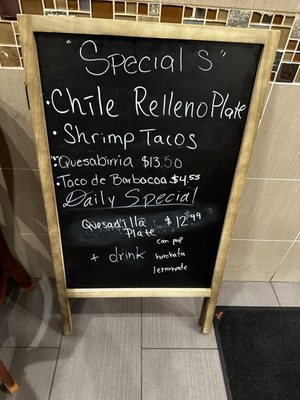 "Specials"
· Chile Relleno Plate
· Shrimp Tacos
· Quesabirria $13.50
· Taco de Barbacoa $4.55
Daily Special
Quesadilla $12.99
Plate
+ drink
can pop
horchata
lemonade